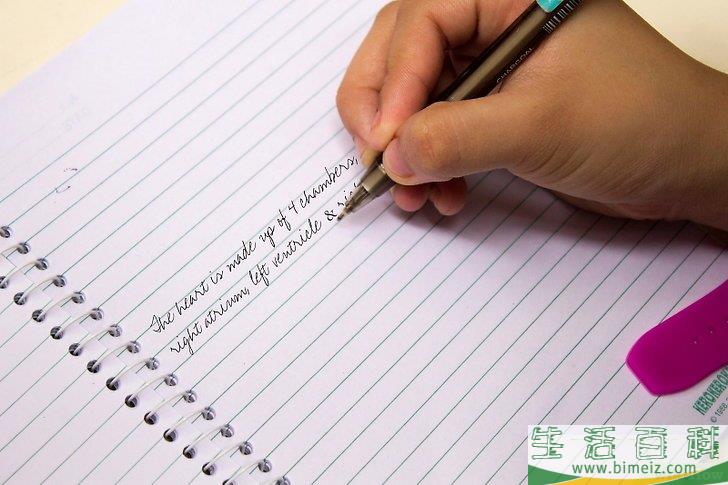 The heart is made up of 4 chambers,
right atrium, left ventricle & ri
CHARCOAL
KEROKERO
© 1998
生活百科
www.bimeiz.com